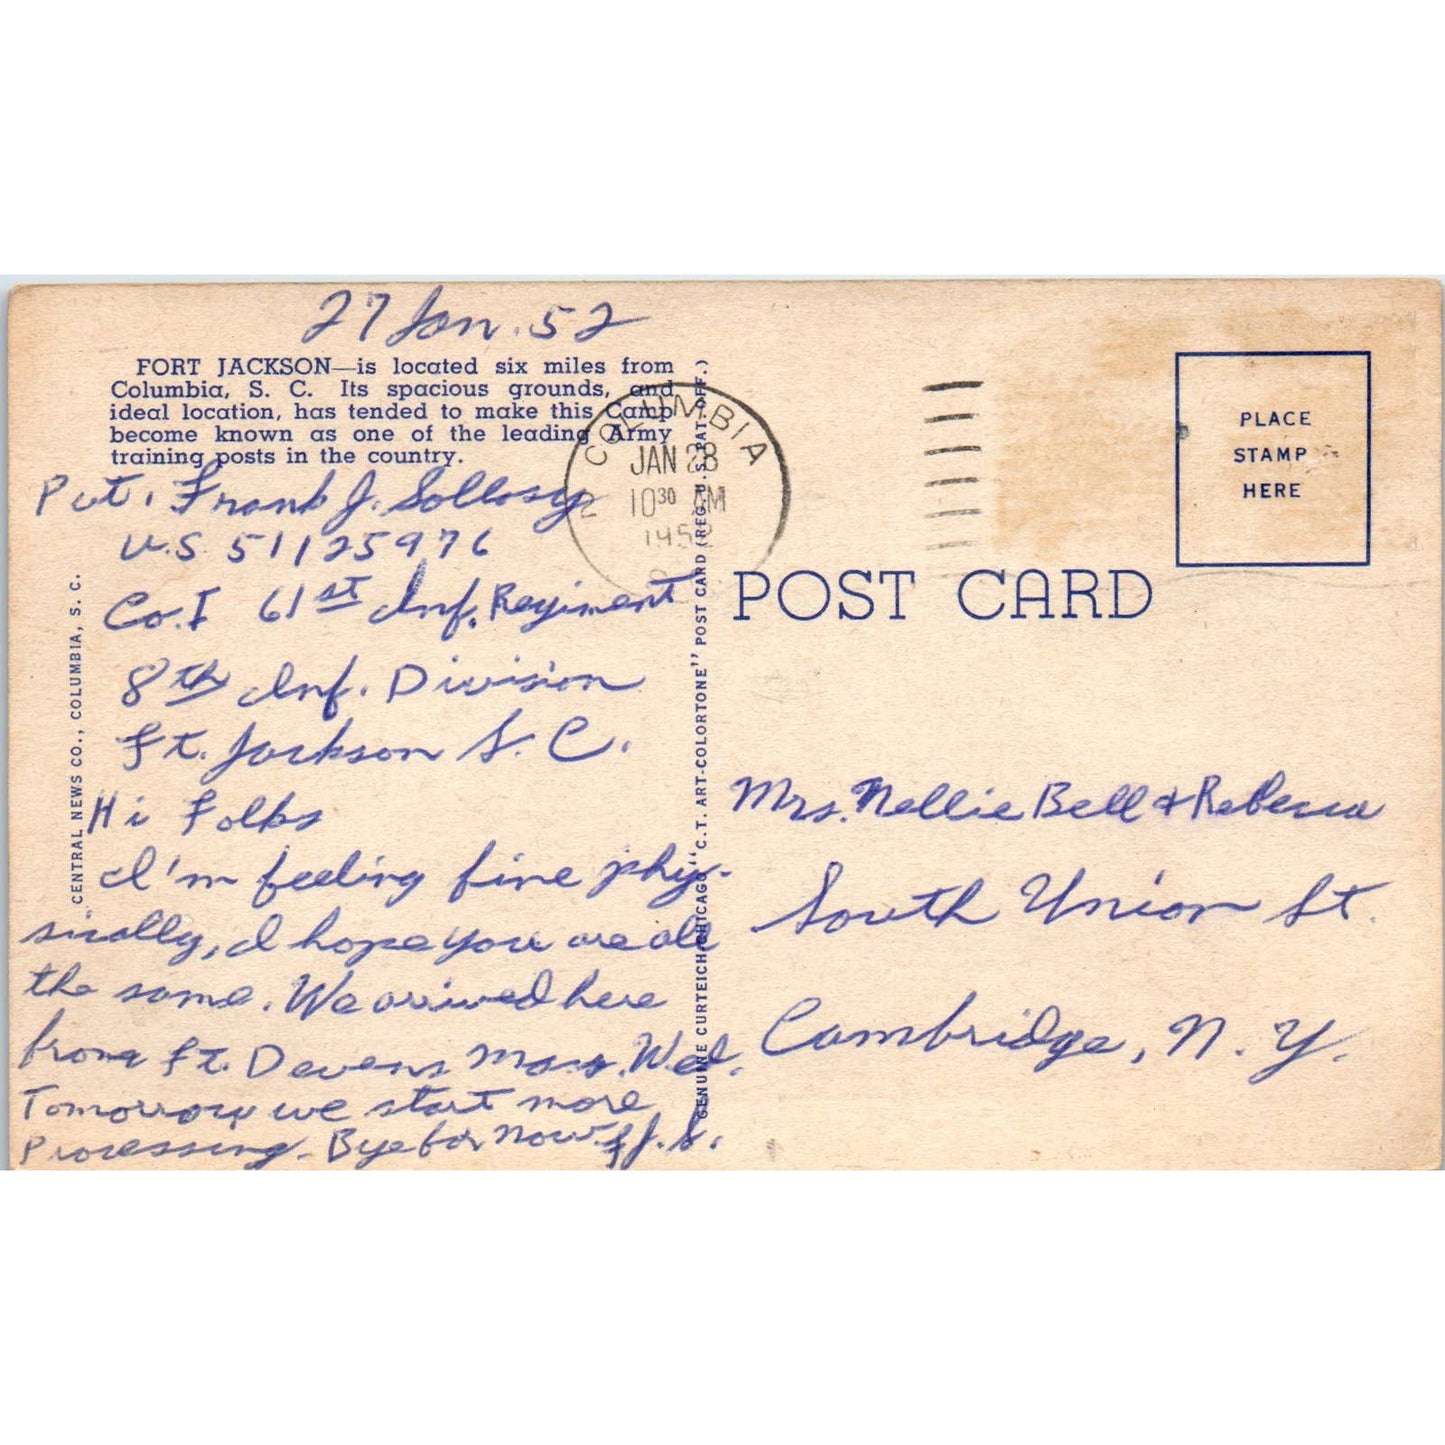 27 Jan. 52
FORT JACKSON—is located six miles from
Columbia, S. C. Its spacious grounds, and
ideal location, has tended to make this Camp
become known as one of the leading Army
training posts in the country.
Pvt. Frank J. Sollosy
U.S. 51125976
Co. I 61st Inf. Regiment
8th Inf. Division
Ft. Jackson S. C.
Hi Folks
I'm feeling fine phy-
sically, I hope you are all
the same. We arrived here
from Ft. Devens Mass. Wed.
Tomorrow we start more
Processing. Bye for now. F.J.S.
CENTRAL NEWS CO., COLUMBIA, S. C.
GENUINE CURTEICH-CHICAGO "C.T. ART-COLORTONE" POST CARD (REG. U.S. PAT. OFF.)
COLUMBIA
JAN 28
10 30 AM
1952
2
PLACE
STAMP
HERE
POST CARD
Mrs. Nellie Bell & Rebecca
South Union St.
Cambridge, N. Y.